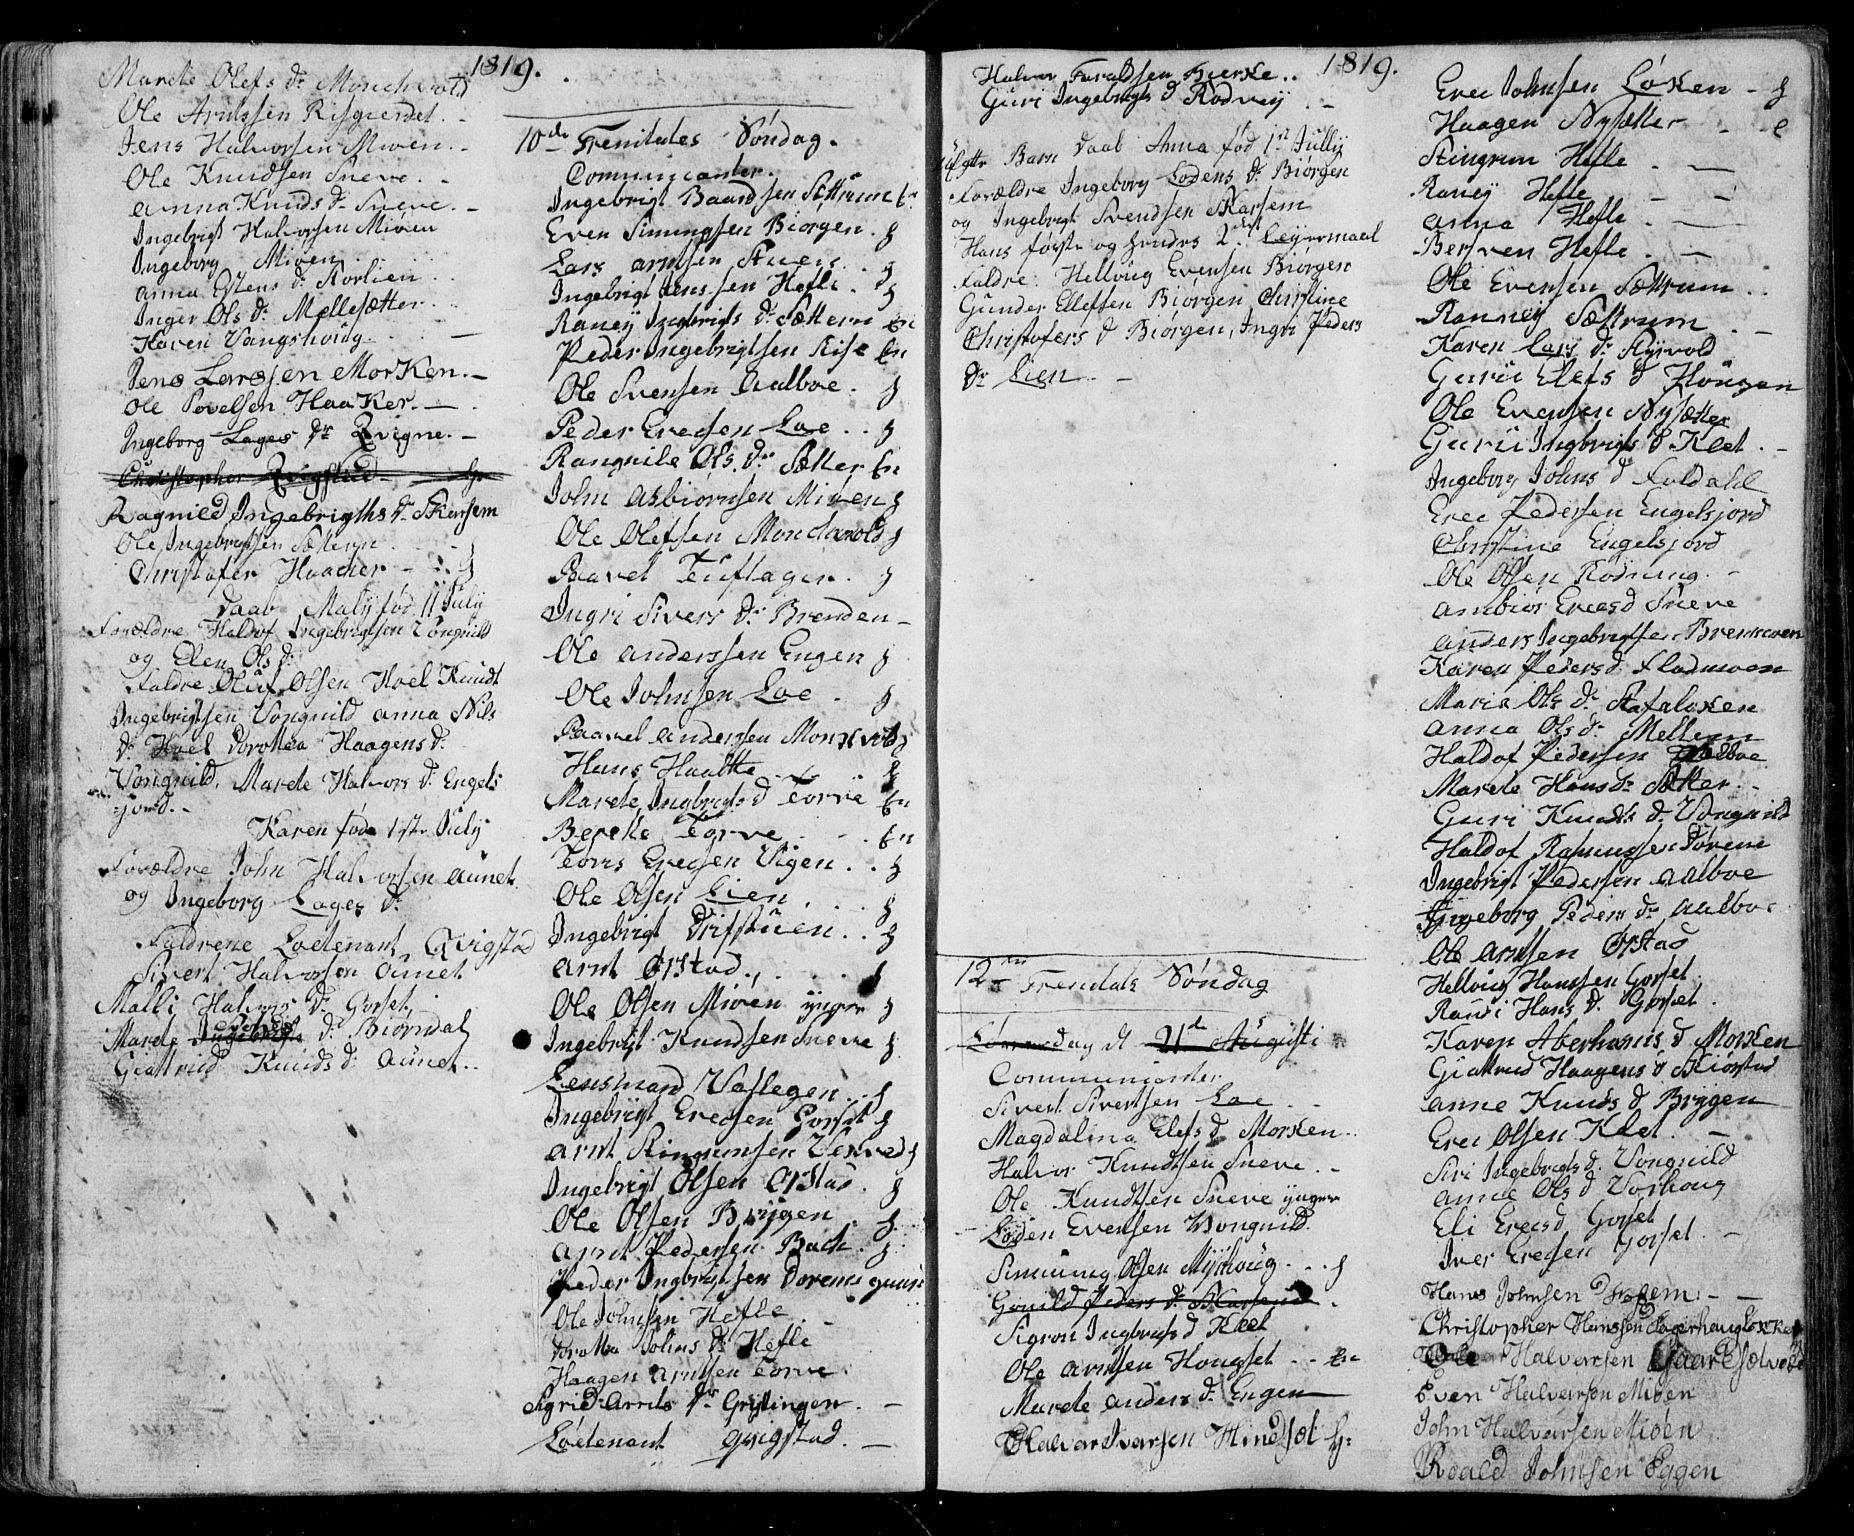 1819.
Marete Olefs Dr Monch vold
Ole Arntssen Risgierdet. -
Jens Halvorsen Mioen. -
Ole Knudsen Sneve. -
Anna Knuds Dr Sneve. -
Ingebrigt Halvorsen Mioen
Ingeborg Mioen
Anna Estens Dr
Inger Ols Dr Mellesætter
Karen Vangshoug.
Jens Larssen Morken. -
Ole Povelsen Haaker. -
Ingeborg Lages Dr Qvigne. -
Christopher Qvigstad
Ragnild Ingebrigths Dr Skarsem
Ole Ingebrigtsen Sættern
Christofer Haacker
Daab Malij fød 11 July
Forældre Haldof Ingebrigtsen Vongnild
og Elen Ols Dr
Faldre Oluf Olsen Hoel Knudt
Ingebrigtsen Vongnild Anna Nils
Dr Hoel Dorothea Haagens Dr
Vongnild, Marete Halvors Dr Engels
jord. -
Karen føde 1ste July
Forældre John Halvorsen Aunet
og Ingeborg Lages Dr
Faldrene Loetenant Qvigstad
Sivert Halvorsen Aunet
Malli Halvors Dr Gorset,
Marete Dr Biørndal
Giertrud Knuds Dr Aunet..
10de Trenitates Søndag.
Communicanter.
Ingebrigt Baardsen Sættrum En
Even Simingsen Biørgen. g
Lars Arntsen Stuen. g
Ingebrigt Jenssen Hefle. g
Raney Ingbrigts Dr Sættern En
Peder Ingebrigtsen Rise En
Ole Svensen Aalboe. g
Peder Erecsen Loe. . g
Rangnile Ols Dr Sætter En
John Asbiørnsen Mioen g
Ole Olefsen Mondsvold g
Paavel Teuflager. g
Ingri Sivers Dr Brenden -
Ole Anderssen Engen g
Ole Johnsen Loe - g
Paavel Andersen Monsvold g
Hans Haatte g
Marete Ingbrigts D Torve En
Berete Torve En
Tovis Erecsen Vigen. . g
Ole Olsen Lien g
Ingebrigt Drifstuen. . g
Arnt Orstad g
Ole Olsen Mioen yngre g
Ingebrigt Knudsen Sneve g
Lensmand Vaslegen. . g
Ingebrigt Erecsen Gorset g
Arnt g
Ingebrigt Olsen Orstad. g
Ole Olsen Bryggen g
Arnt Pedersen Bach. g
Peder Ingbrigtsen Dorenes
Ole Johnsen Hefle
Dorothea Johns Dr Hefle
Haagen Arntsen Torve.
Sigrid Arnts Dr Grytingen. -
Loetenant Qvigstad. -
1819.
Halvor Taraldsen Bierke. .
Guri Ingebrigts D Rodvey. -
Barn Daab Anna fød 1ste Jullij
Forældre Ingeborg Lodens Dr Biørgen
og Ingebrigt Svendsen Skarsem
Hans første og hendes 2det Leyermaal
Faldre. Hellvig Evensen Biørgen
Gunder Ellefsen Biørgen, Christine
Christofers D Biørgen, Ingri Peders
Dr Lien. -
12te Trenitats Søndag
dag d 21de Augusti
Communicanter
Sivert Sivertsen Loe
Magdalina Elefs D Morken. .
Halvor Knudtsen Sneve. -
Ole Knudtsen Sneve yngre
Loden Evensen Vongnild.
Simming Olsen Myrhoug. . . g
Gonild Peders Dr Skarsem
Sigron Ingbrigts D Kleet
Ole Arntsen Hougset. . En
Marete Anders Dr Engen
Halvor Ivarsen Hindset g:
Erec Johnsen Løken - g
Haagen Nysætter
Stingrum Hefle
Raney Hefle
Anna Hefle
Beryven Hefle
Ole Evensen Sættrum
Ranney Sættrum
Karen Lars Dr
Gurie Elefs D Hougen
Ole Evensen Nysætter
Guru Ingbrigts D Kleet. -
Ingeborg Johns D Faldahl
Erec Pedersen Engelsjord
Christine Engelsjord
Ole Olsen Rodning. -
Ambior Erecs D Sneve
Anders Ingebrigtsen Bremoen
Karen Peders D. Flodmoen
Maria Ols Dr
Anna Ols Dr Mellem
Haldof Pedersen Aalboe
Marete Hans Dr Sætter
Guri Knudts Dr Vongnild
Haldof Rasmussen Dørem
Ingebrigt Pedersen Aalboe
Ingeborg Peders Dr Aalboe
Ole Arntsen Orstad
Hellvig Hanssen Gorset.
Randi Hans D. Gorset.
Karen Aberhams D Morken
Giertrud Haagens D Skiørstad
Anne Knuds D Bryggen
Erec Olsen Kleet. -
Siri Ingebrigts D. Vongnild
Anne Ols D Vorhoug
Eli Erecs D Gorset
Iver Erecsen Gorset. -
Hans Johnsen
Christopher Hanssen
Halvarsen
Even Halvarsen Mioen
John Halvarsen Mioen
Roald Johnsen Eggen